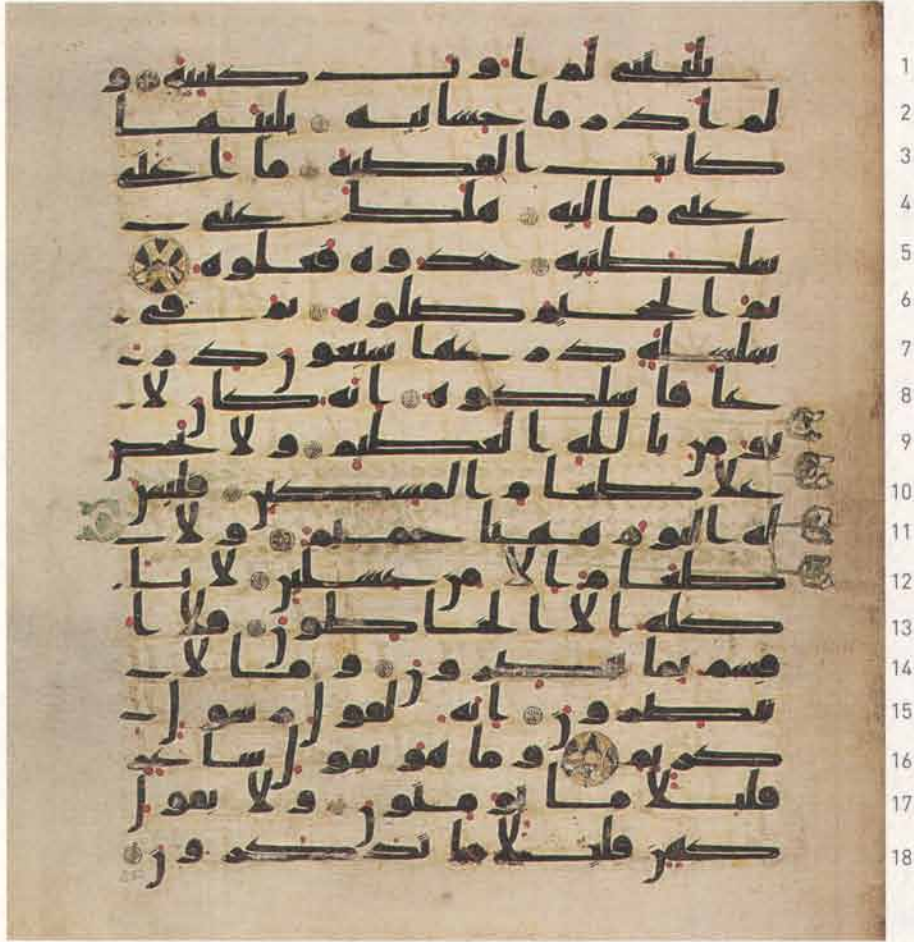 يليتني لم اوت كتبيه و 1
لم ادر ما حسابيه يليتها 2
كانت القضيه ما اغنى 3
عنى ماليه هلك عنى 4
سلطنيه خذوه فغلوه 5
ثم الجحيم صلوه ثم فى 6
سلسله ذرعها سبعون ذر 7
عا فاسلكوه انه كان لا 8
يومن بالله العظيم ولا يحض 9
علا طعام المسكين فليس 10
له اليوم ههنا حميم ولا 11
طعام الا من غسلين لا يا 12
كله الا الخاطون فلا ا 13
قسم بما تبصرون وما لا 14
تبصرون انه لقول رسول 15
كريم وما هو بقول شاعر 16
قليلا ما تومنون ولا بقول 17
كهن قليلا ما تذكرون 18